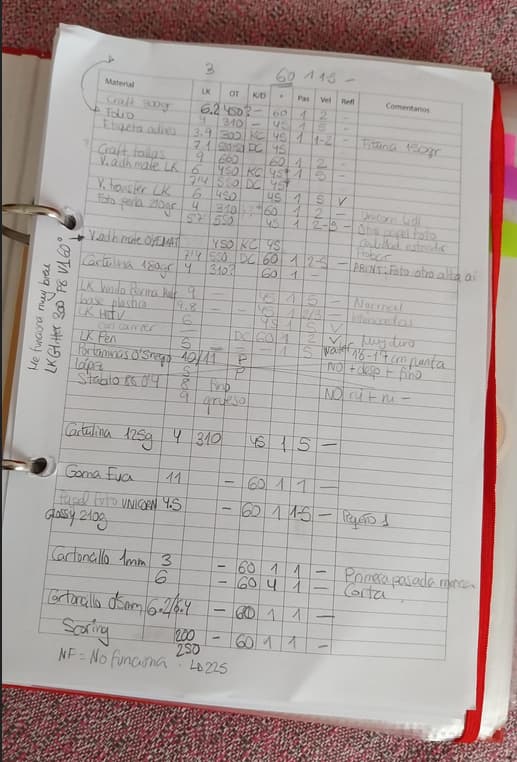 3 60 1 1 5 -
Material LK OT K/D ° Pas Vel Refl Comentarios
Craft 300gr 6.2 450? - 60 1 2 -
Folio 4 310 - 45 1 5 -
Etiqueta adhes 3.9 300 KC 45 1 1-2 - 150gr
? Craft bolsas 7.1 DC 45
V. adh mate LK 9 660 60 1 2 -
6 450 KC 45 1 5 -
V. transfer LK 7'4 550 DC 45
6 450 45 1 5 V
Foto perla 210gr 4 310 60 1 2 - Unicorn
5'7 550 45 1 2-5 - Otro papel foto
calidad estandar
→ V. adh mate 450 KC 45 Probar
7'4 550 DC 60 1 2-5 - PRINT: Foto otro alta
Cartulina 180gr 4 310? 60 1 -
LK 9 45 1 5 - Normal
base plastico 4.8 - - 45 1 2/3 -
LK HTV 6 45 1 5 V
- DC 60 1 2 V
LK Pen 5 - - - 1 5 18-19 cm punta
Portaminas 10/11 P NO + fino
lápiz 5 P
Stabilo 88 0'4 8 fino NO ni + ni -
9 grueso
Me funciona muy bien
LK Glitter 300 P8 V1 60°
Cartulina 125g 4 310 45 1 5 -
Goma Eva 11 - 60 1 1 -
Papel Foto UNICORN 4.5 - 60 1 1-5 - 1
glossy 210g
Cartoncillo 1mm 3 - 60 1 1 - Primera pasada
6 - 60 4 1 - Corta
Cartoncillo 0'5mm 6.2/6.4 - 60 1 1 -
Scoring 200 - 60 1 1 -
250
NF = No funciona · LD 225